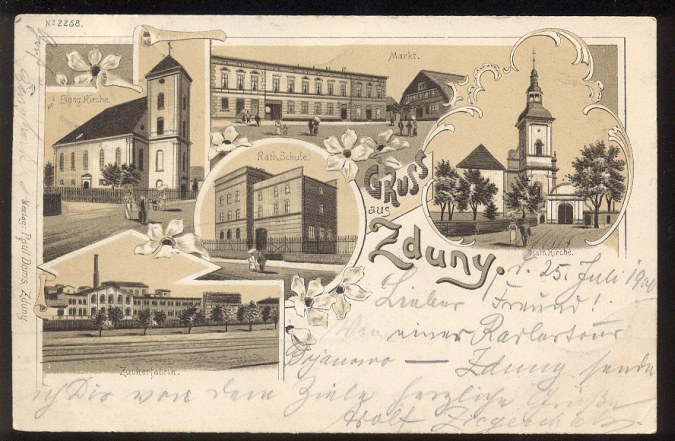 No 2258.
Evang. Kirche.
Markt.
Kath. Schule.
Kath. Kirche.
Zuckerfabrik.
GRUSS
aus
Zduny.
Verlag: Paul Doms, Zduny
d. 25. Juli
Lieber Freund!
Von einer Radlertour
— Zduny sende
ich Dir von dem Ziele herzliche Grüße
Adolf